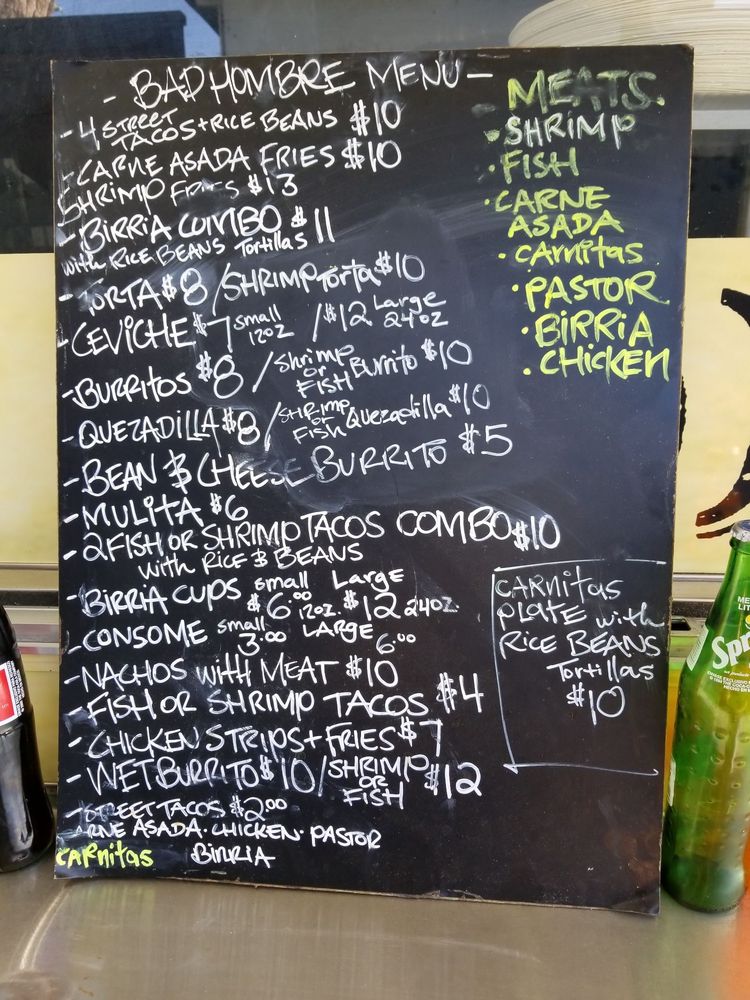 - BAD HOMBRE MENU -
- 4 STREET TACOS + RICE BEANS $10
- CARNE ASADA FRIES $10
SHRIMP FRIES $13
- BIRRIA COMBO $11
with RICE BEANS Tortillas
- TORTA $8 / SHRIMP Torta $10
- CEVICHE $7 small 12oz / $12 Large 24oz
- BURRITOS $8 / Shrimp or FISH Burrito $10
- QUEZADILLA $8 / SHRIMP or FISH Quezadilla $10
- BEAN & CHEESE BURRITO $5
- MULITA $6
- 2 FISH OR SHRIMP TACOS COMBO $10
with RICE & BEANS
- BIRRIA CUPS small $6.00 12oz. Large $12 24oz.
- CONSOME small 3.00 LARGE 6.00
- NACHOS with MEAT $10
- FISH OR SHRIMP TACOS $4
- CHICKEN STRIPS + FRIES $7
- WET BURRITO $10 / SHRIMP OR FISH $12
- STREET TACOS $2.00
CARNE ASADA · CHICKEN · PASTOR
CARNitas BIRRIA
MEATS.
· SHRIMP
· FISH
· CARNE
ASADA
· CARnitas
· PASTOR
· BiRRiA
· CHicKEN
CARNitAS
PLATE with
RICE BEANS
Tortillas
$10